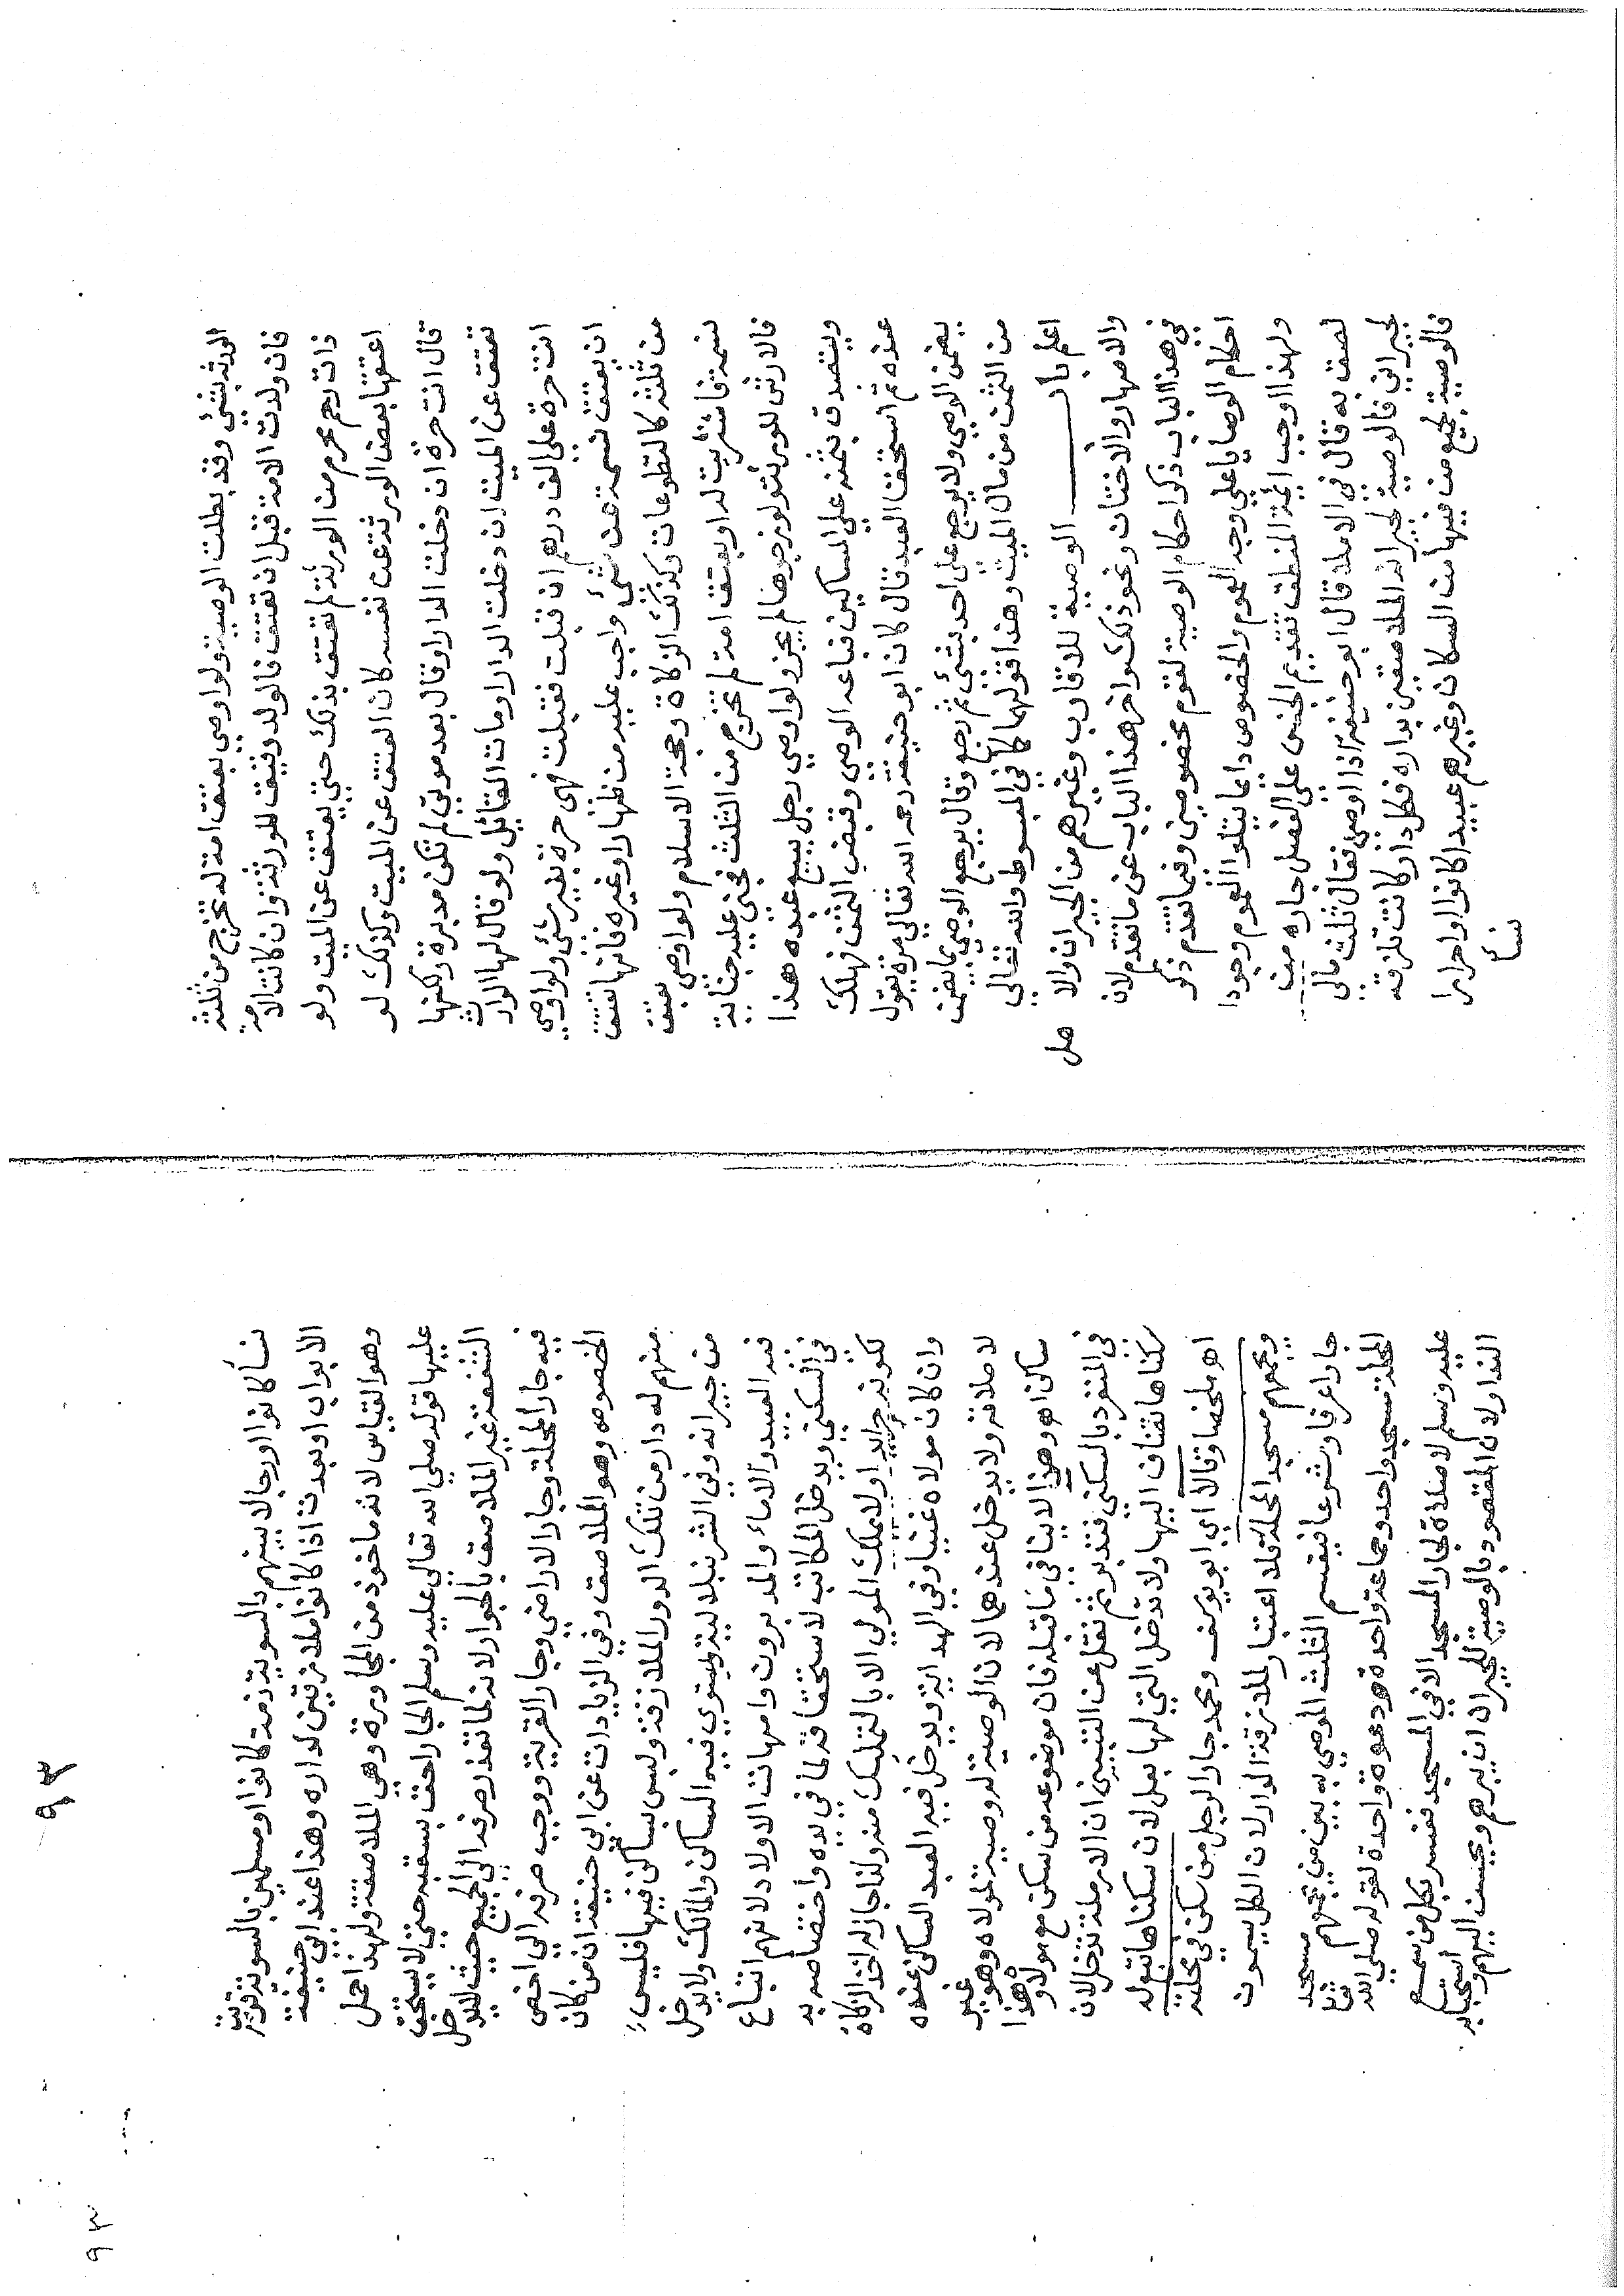 الورثة بشئ وقد بطلت الوصية ولو اوصي بعتق امة له تخرج من ثلثه
فان ولدت الامة قبل ان تعتق فالولد رقيق للورثة وان كانت الامة
ذات رحم محرم من الورثة لم تعتق بذلك حتي يعتق عن الميت ولو
اعتقها بعض الورثة عن نفسه كان العتق عن الميت وكذلك لو
قال انت حرة ان دخلت الدار وقال بعد موتي لم تكن مدبرة ولكنها
تعتق عن الميت ان دخلت الدار ومات القائل ولو قال لها الوارث
انت حرة علي الف درهم ان قبلت فقبلت فهي حرة بغير شئ ولو اوصي
ان يعتق نسمة عن شئ واجب عليه من ظهار او غيره فانها تعتق
من ثلثه كالتطوعات وكذلك الزكاة وحجة الاسلام ولو اوصي بعتق
نسمة فاشتريت له او بعتق امة لم تخرج من الثلث فجني عليه جناية
فالارش للورثة ولو زوجوها لم يجز ولو اوصي رجل ببيع عبده هذا
ويتصدق بثمنه علي المساكين فباعه الوصي وقبض الثمن فهلك
عنده ثم استحق العبد قال كان ابو حنيفة رحمه الله تعالي مرة يقول
يضمن الوصي ولا يرجع علي احد بشئ ثم رجع وقال يرجع الوصي بما يضمن
من الثمن من مال الميت وهذا قولهما كما في المبسوط والله تعالي
اعلم باب الوصية للاقارب وغيرهم من الجيران والا
صل
والاصهار والاختان ونحو ذلك واخر هذا الباب عن ما تقدم لان
في هذا الباب ذكر احكام الوصية لقوم مخصوصين وفيما تقدم ذكر
احكام الوصايا علي وجه العموم والخصوص دايما يتلوا العموم وجودا
ولهذا اوجب ائمة المنطق تقديم الجنس علي الفصل جاره من
لصق به قال في الاملاء قال ابو حنيفة اذا اوصي فقال ثلث مالي
لجيراني فالوصية لجيرانه الملاصقين بداره فكل دار كانت تلزقه
فالوصية لجميع من فيها من السكان وغيرهم عبيدا كانوا او احرارا
نسأ
نسأ كانوا او رجالا بينهم بالسوية ذمة كانوا او مسلمين بالسوية قربت
الابواب او بعدت اذا كانوا ملازقين لداره وهذا عند ابي حنيفة
وهو القياس لانه ماخوذ من المجاورة وهي الملاصقة ولهذا حمل
عليها قوله صلي الله تعالي عليه وسلم الجار احق بسقبه حتي لا يستحق
الشفعة غير الملاصق بالجوار لانه لما تعذر صرفه الي الجميع حيث للدخل
فيه جار المحلة وجار الاراضي وجار القرية ووجب صرفه الي اخص
الخصوص وهو الملاصق وفي الزيادات عن ابي حنيفة ان من كان
منهم له دار من تلك الدور الملازقة وليس بساكن فيها فليس
من جيرانه وفي الشرنبلالية ويستوي فيه الساكن والمالك ولا يدخل
فيه العبيد والاماء والمدبرون وامهات الاولاد لانهم اتباع
في السكني ويدخل المكاتب لاستحقاقه لما في يده واختصاصه به
لكونه حرا يدا ولا يملك المولي الا بالتمليك منه ولذا جاز له اخذ الزكاة
وان كان مولاه غنيا وفي الهداية ويدخل فيه العبد الساكن عنده
لاطلاقه ولا يدخل عندهما لان الوصية له وصية لمولاه وهو غير
ساكن اهـ وهذا لا ينافي ما قبله فان موضوعه من سكن مع مولاه وهذا
في المنفرد بالسكني فتدبر ثم نقل عن التبيين ان الارملة تدخل لان
سكناها تضاف اليها ولا تدخل التي لها بعل لان سكناها تبع له
اهـ ملخصا وقالا اي ابو يوسف ومحمد جار الرجل من سكن في محلته
ويجمعهم مسجد المحلة فلا اعتبار للملازقة الدار لان الكل يسمون
جارا عرفا وشرعا فيقسم الثلث الموصي به بين من يجمعهم مسجد
المحلة مسجد واحد وجماعة واحدة ودعوة واحدة لقوله صلي الله تعالي
عليه وسلم لا صلاة لجار المسجد الا في المسجد ففسر بكل من سمع
النداو لان المقصود بالوصية للجيران ان يبرهم ويحسن اليهم واستحبابه
٩٣
٩٣